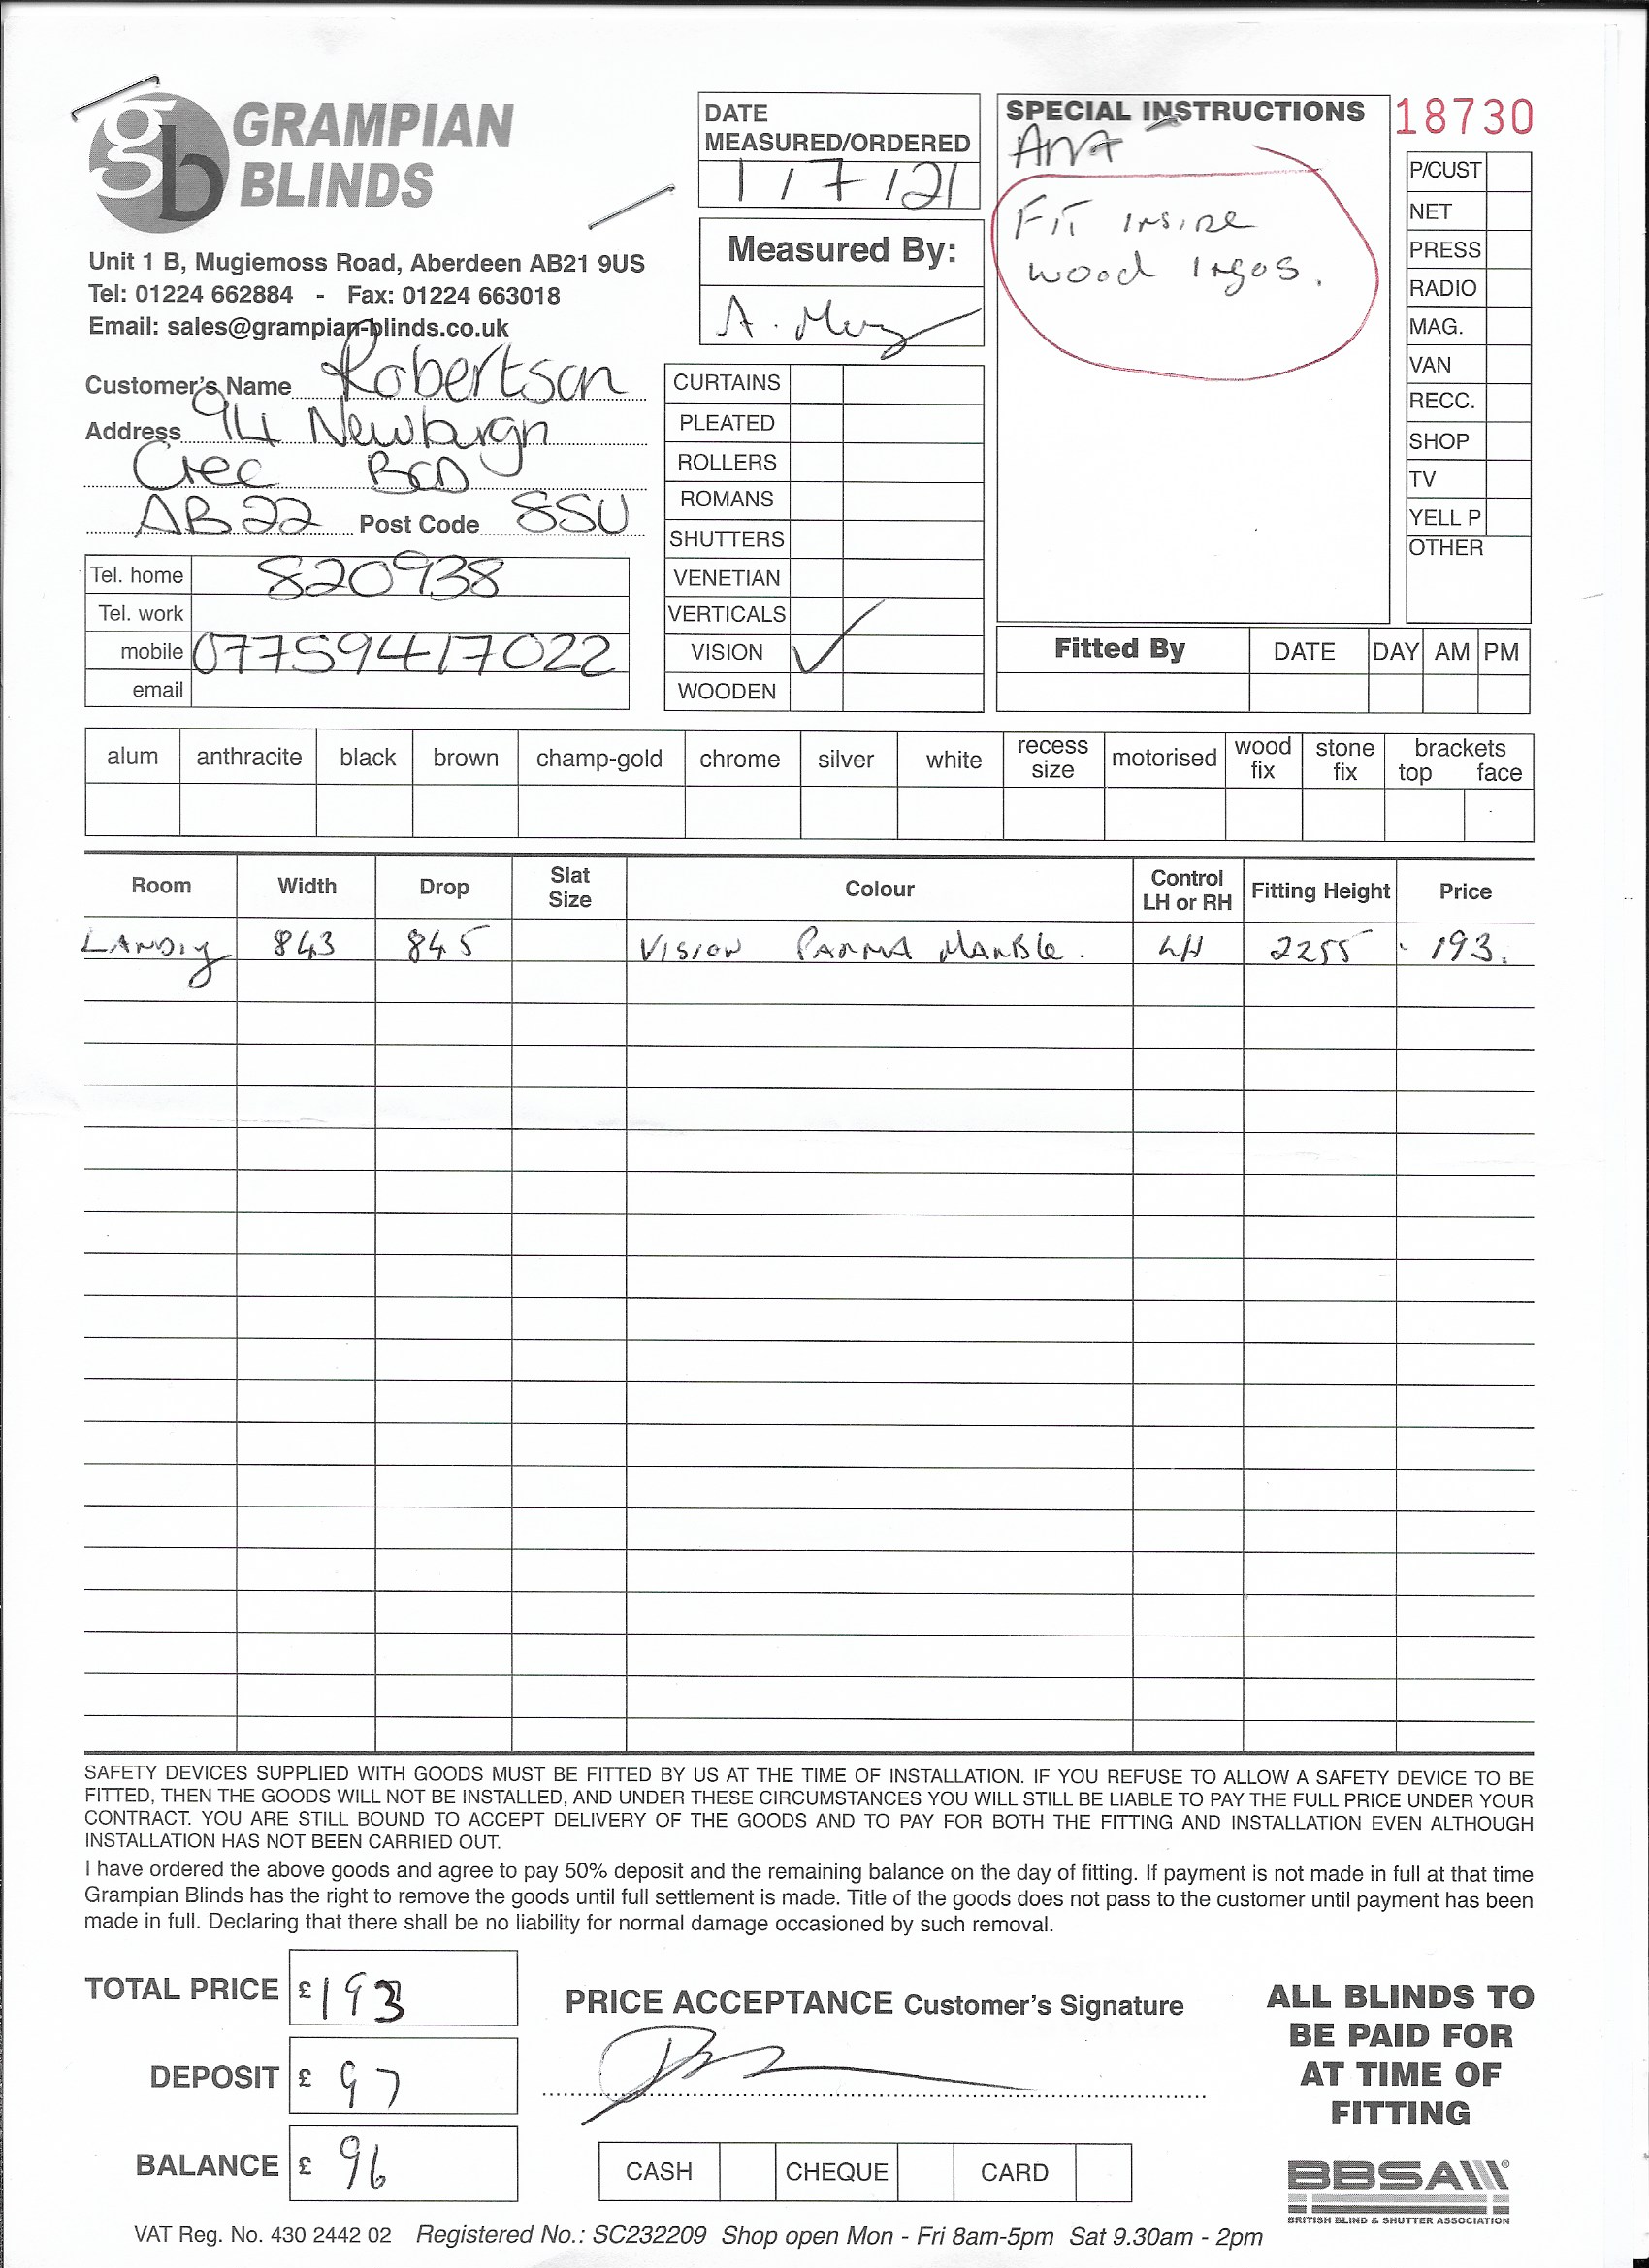 gb GRAMPIAN
BLINDS
Unit 1 B, Mugiemoss Road, Aberdeen AB21 9US
Tel: 01224 662884 - Fax: 01224 663018
Email: sales@grampian-blinds.co.uk
Customer's Name Robertson
Address 94 Newburgh
Crec BOD
AB22 Post Code 8SU
Tel. home 820938
Tel. work
mobile 07759417022
email
DATE
MEASURED/ORDERED
1/7/21
Measured By:
A.
CURTAINS
PLEATED
ROLLERS
ROMANS
SHUTTERS
VENETIAN
VERTICALS
VISION ✓
WOODEN
SPECIAL INSTRUCTIONS
Fit inside
wood ingos.
18730
P/CUST
NET
PRESS
RADIO
MAG.
VAN
RECC.
SHOP
TV
YELL P
OTHER
Fitted By DATE DAY AM PM
alum anthracite black brown champ-gold chrome silver white recess size motorised wood fix stone fix brackets top face
Room Width Drop Slat Size Colour Control LH or RH Fitting Height Price
LANDIG 843 845 VISION PARMA MARBLE. LH 2255 193.
SAFETY DEVICES SUPPLIED WITH GOODS MUST BE FITTED BY US AT THE TIME OF INSTALLATION. IF YOU REFUSE TO ALLOW A SAFETY DEVICE TO BE
FITTED, THEN THE GOODS WILL NOT BE INSTALLED, AND UNDER THESE CIRCUMSTANCES YOU WILL STILL BE LIABLE TO PAY THE FULL PRICE UNDER YOUR
CONTRACT. YOU ARE STILL BOUND TO ACCEPT DELIVERY OF THE GOODS AND TO PAY FOR BOTH THE FITTING AND INSTALLATION EVEN ALTHOUGH
INSTALLATION HAS NOT BEEN CARRIED OUT.
I have ordered the above goods and agree to pay 50% deposit and the remaining balance on the day of fitting. If payment is not made in full at that time
Grampian Blinds has the right to remove the goods until full settlement is made. Title of the goods does not pass to the customer until payment has been
made in full. Declaring that there shall be no liability for normal damage occasioned by such removal.
TOTAL PRICE £193
DEPOSIT £ 97
BALANCE £ 96
PRICE ACCEPTANCE Customer's Signature
CASH CHEQUE CARD
ALL BLINDS TO
BE PAID FOR
AT TIME OF
FITTING
BBSA
BRITISH BLIND & SHUTTER ASSOCIATION
VAT Reg. No. 430 2442 02 Registered No.: SC232209 Shop open Mon - Fri 8am-5pm Sat 9.30am - 2pm